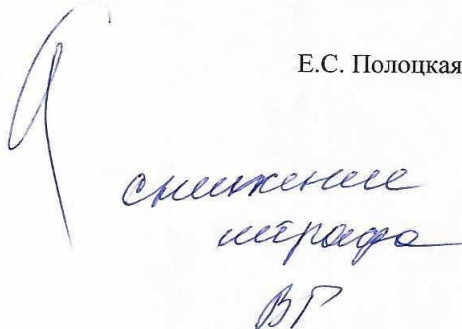 Е.С. Полоцкая
снижение
штрафа
ВГ